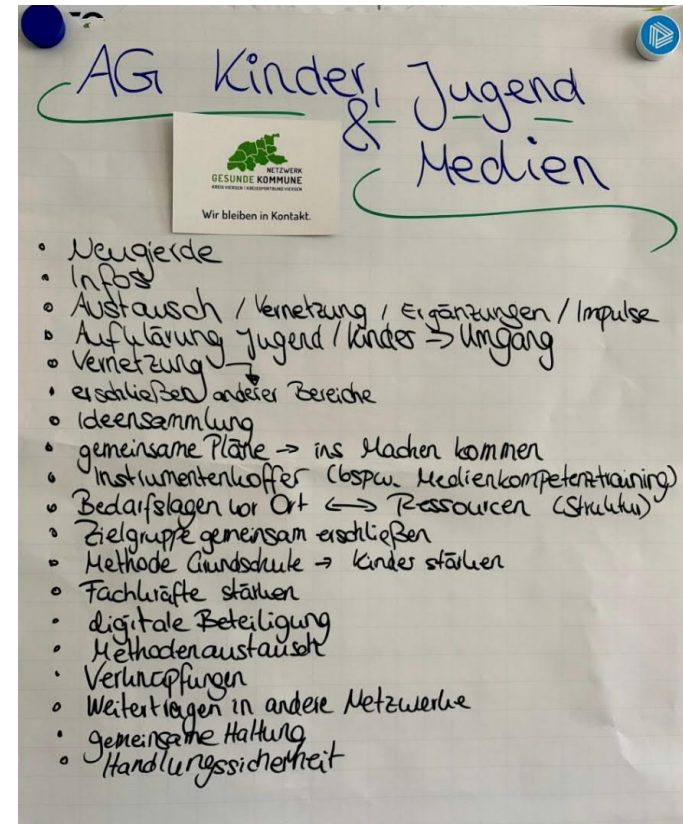 AG Kinder, Jugend
& Medien
NETZWERK
GESUNDE KOMMUNE
KREIS VIERSEN | KREISSPORTBUND VIERSEN
Wir bleiben in Kontakt.
• Neugierde
• Infos
• Austausch / Vernetzung / Ergänzungen / Impulse
• Aufklärung Jugend / Kinder → Umgang
• Vernetzung
• erschließen anderer Bereiche
• Ideensammlung
• gemeinsame Pläne → ins Machen kommen
• Instrumentenkoffer (bspw. Medienkompetenztraining)
• Bedarfslagen vor Ort ↔ Ressourcen (Struktur)
• Zielgruppe gemeinsam erschließen
• Methode Grundschule → Kinder stärken
• Fachkräfte stärken
• digitale Beteiligung
• Methodenaustausch
• Verknüpfungen
• Weitertragen in andere Netzwerke
• gemeinsame Haltung
• Handlungssicherheit